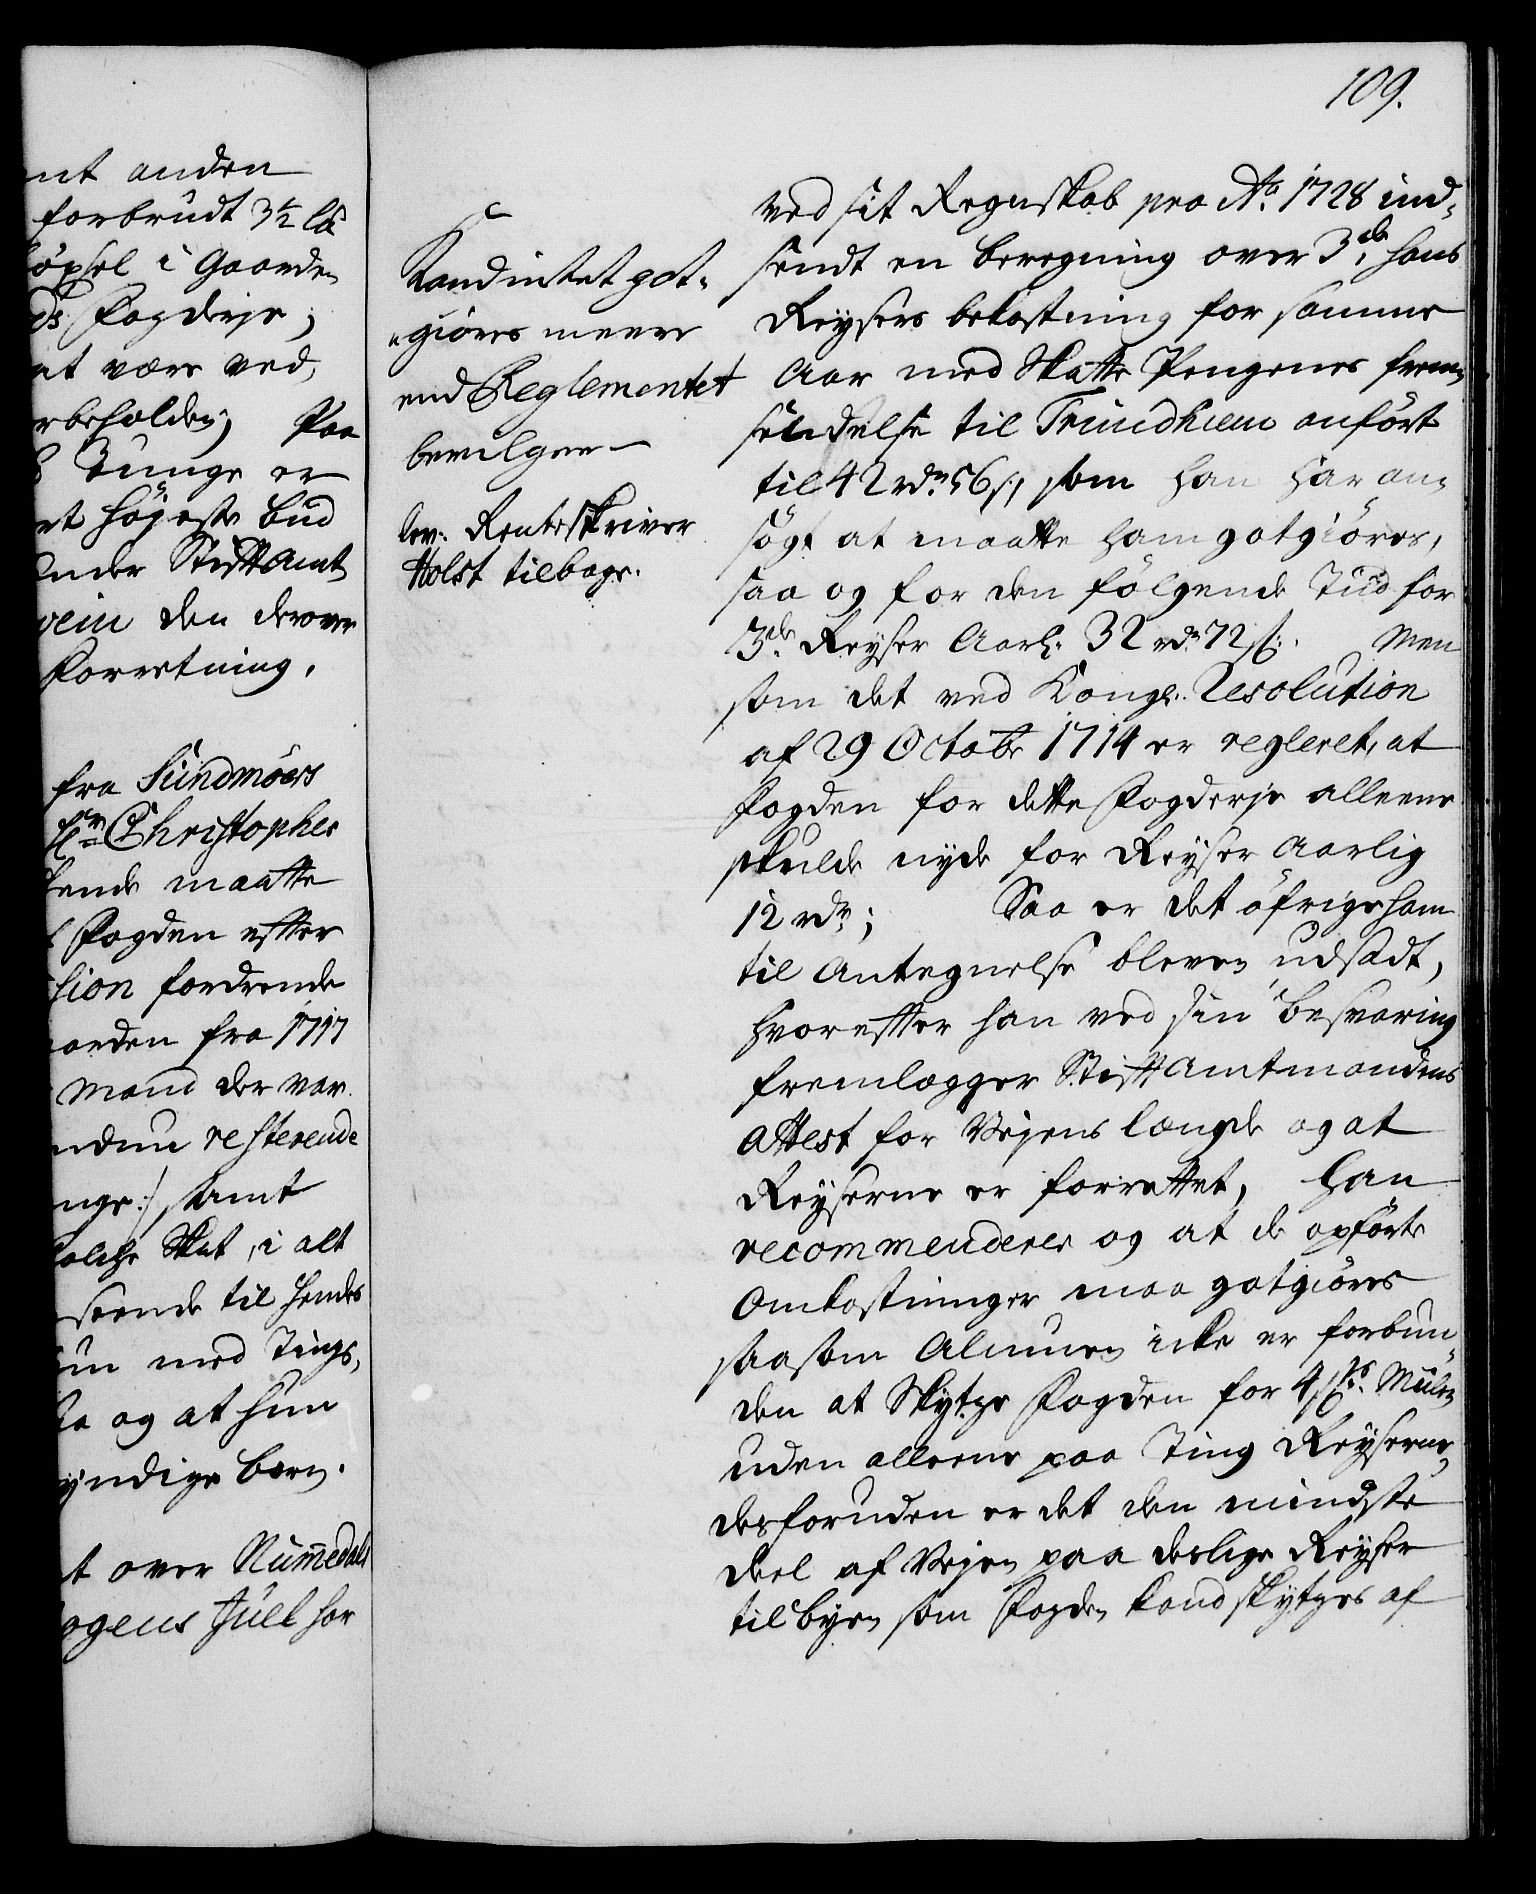 109.
nt anden
forbrudt 3½ lß
öxsel i Gaarden
ds Fogderje;
at være ved,
rbeholden; Paa
Tunge er
et höjeste bud
under Stiftamt
vein den derover
Forretning.
fra Sundmöers
Sl. Christopher
hende maatte
Fogden efter
sion fordrende
aarden fra 1717
Mand der var
endnu resterende
nge:/ samt
Skat, i alt
seende til hendes
un med Tings,
og at hun
yndige börn.
t over Nummedals
ogens Juel har
Kand intet got-
giöres meere
end Reglementet
bevilger
lev: Renteskriver
Holst tilbage.
ved sit Regnskab pro Ao. 1728 ind-
sendt en beregning over 3de hans
Reysers bekostning for samme
Aar med Skatte Pengenes frem-
sendelse til Trundhiem anfört
til 42 rdr 56 s/, som han har an-
sögt at maatte ham gotgiöres,
saa og for den fölgende Tiid for
3de Reyser Aarl. 32 rdr 72 s:. Men
som det ved Kongl. Resolution
af 29 Octobr 1714 er regleret, at
Fogden for dette Fogderje alleene
skulde nyde for Reyser Aarlig
12 rdr; Saa er det öfrige ham
til Antegnelse bleven udsadt,
hvorefter han ved sin besvaring
fremlegger Stiftamtmandens
Attest for Vejens længde og at
Reyserne er forrettet, han
recommenderer og at de opförte
Omkostninger maa gotgiöres
saasom Almuen icke er forbun-
den at Skytze Fogden for 4 s: Miilen
uden alleene paa Ting Reyserne,
desforuden er det den mindste
deel af Vejen paa deslige Reyser
til byen som Fogden kand skytzes af